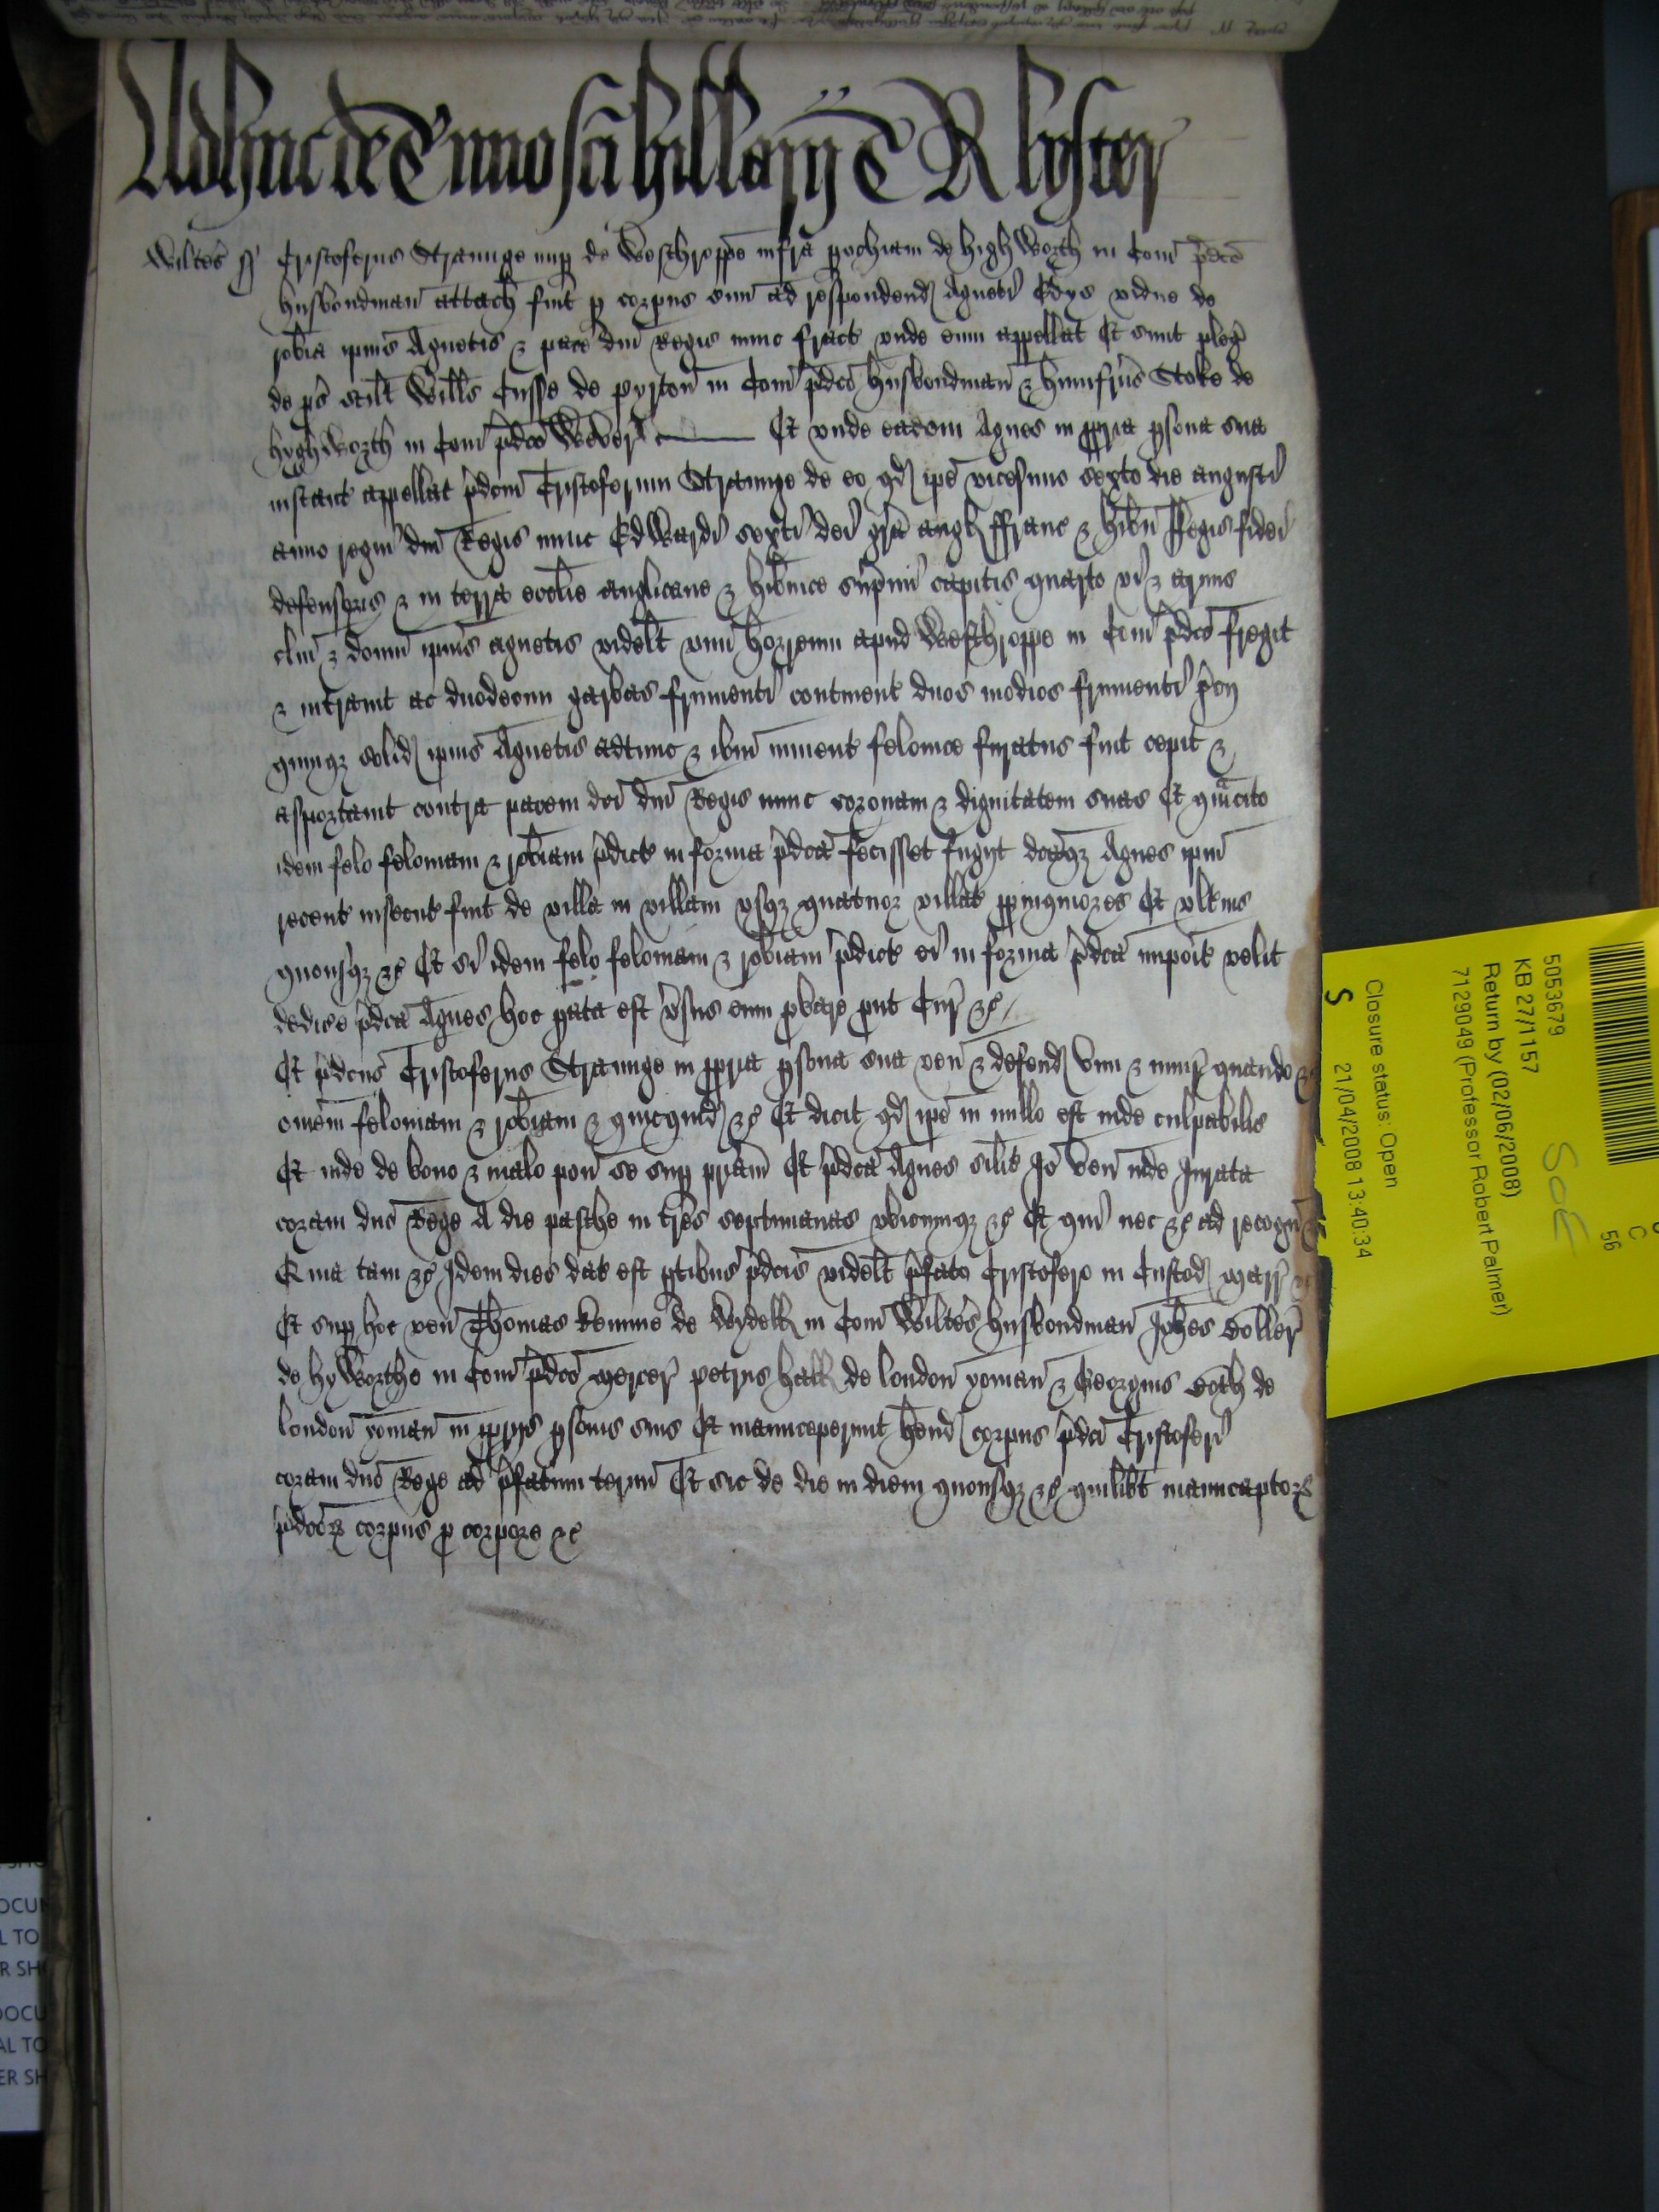 Adhuc de Termino sci hillarij R lyster
Wiltes ss Cristoferus Straunge nup de Westhroppe infra pochiam de high Worth in Com pdco
husbondman attach fuit p corpus suum ad respondend Agneti Edys vidue de
robia ipius Agnetis & pace dni Regis nunc fract vnde eum appellat Et sunt pleg
de ps scilt Wills Cusse de pyrton in Com pdco husbondman & humfrus Stoke de
hyghWorth in Com pdco Wever Et vnde eadem Agnes in ppria psona sua
instant appellat pdcm Cristoferum Straunge de eo qd ipe vicesimo sexto die augusti
anno regni dni Regis nunc EdWardi sexti dei gra angl ffranc & hibn Regis fidei
defensoris & in terra ecclie anglicane & hibnice supmi capitis quarto vi & armis
clm & domu ipius agnetis videlt vnu horreum apud Westhroppe in Com pdco fregit
& intrauit ac duodecim garbas frumenti continent duos modios frumenti pcij
quinqz solid ipius Agnetis adtunc & ibm invent felonice furatus fuit cepit &
asportauit contra pacem dci dni Regis nunc coronam & dignitatem suas Et qumcito
idem felo feloniam & robiam pdict in forma pdca fecisset fugijt dcaqz Agnes ipm
recent insecut fuit de villa in villam vsqz quatuor villat ppinquiores Et vltius
quousqz &c Et si idem felo feloniam & robiam pdict ei in forma pdca impoit velit
dedice pdca Agnes hoc pata est vsus eum pbare put Cur &c
Et pdcus Cristoferus Straunge in ppria psona sua ven & defend vim & iniur quando &c
omem feloniam & robiam & quicquid &c Et dicit qd ipe in nullo est inde culpabilis
Et inde de bono & malo pon se sup priam Et pdca Agnes silit Io ven inde Jurata
coram dno Rege A die pasche in tres septimanas vbicumqz &c Et qui nec &c ad recogn &c
Quia tam &c Idem dies dat est ptibus pdcis videlt pfato Cristofero in Custod marr &c
Et sup hoc ven Thomas kemme de Wydell in Com Wiltes husbondman Johes Coller
de hyWorthe in Com pdco mercer petrus hall de london yoman & Georgius Goth de
london yoman in pprijs psonis suis Et manuceperunt hend corpus pdci Cristoferi
coram dno Rege ad pfatum termi Et sic de die in diem quousqz &c quilibt manucaptor
pdcor corpus p corpore &c
5053679
KB 27/1157
Return by (02/06/2008)
7129049 (Professor Robert Palmer)
Closure status: Open
S 21/04/2008 13:40:34
C
56